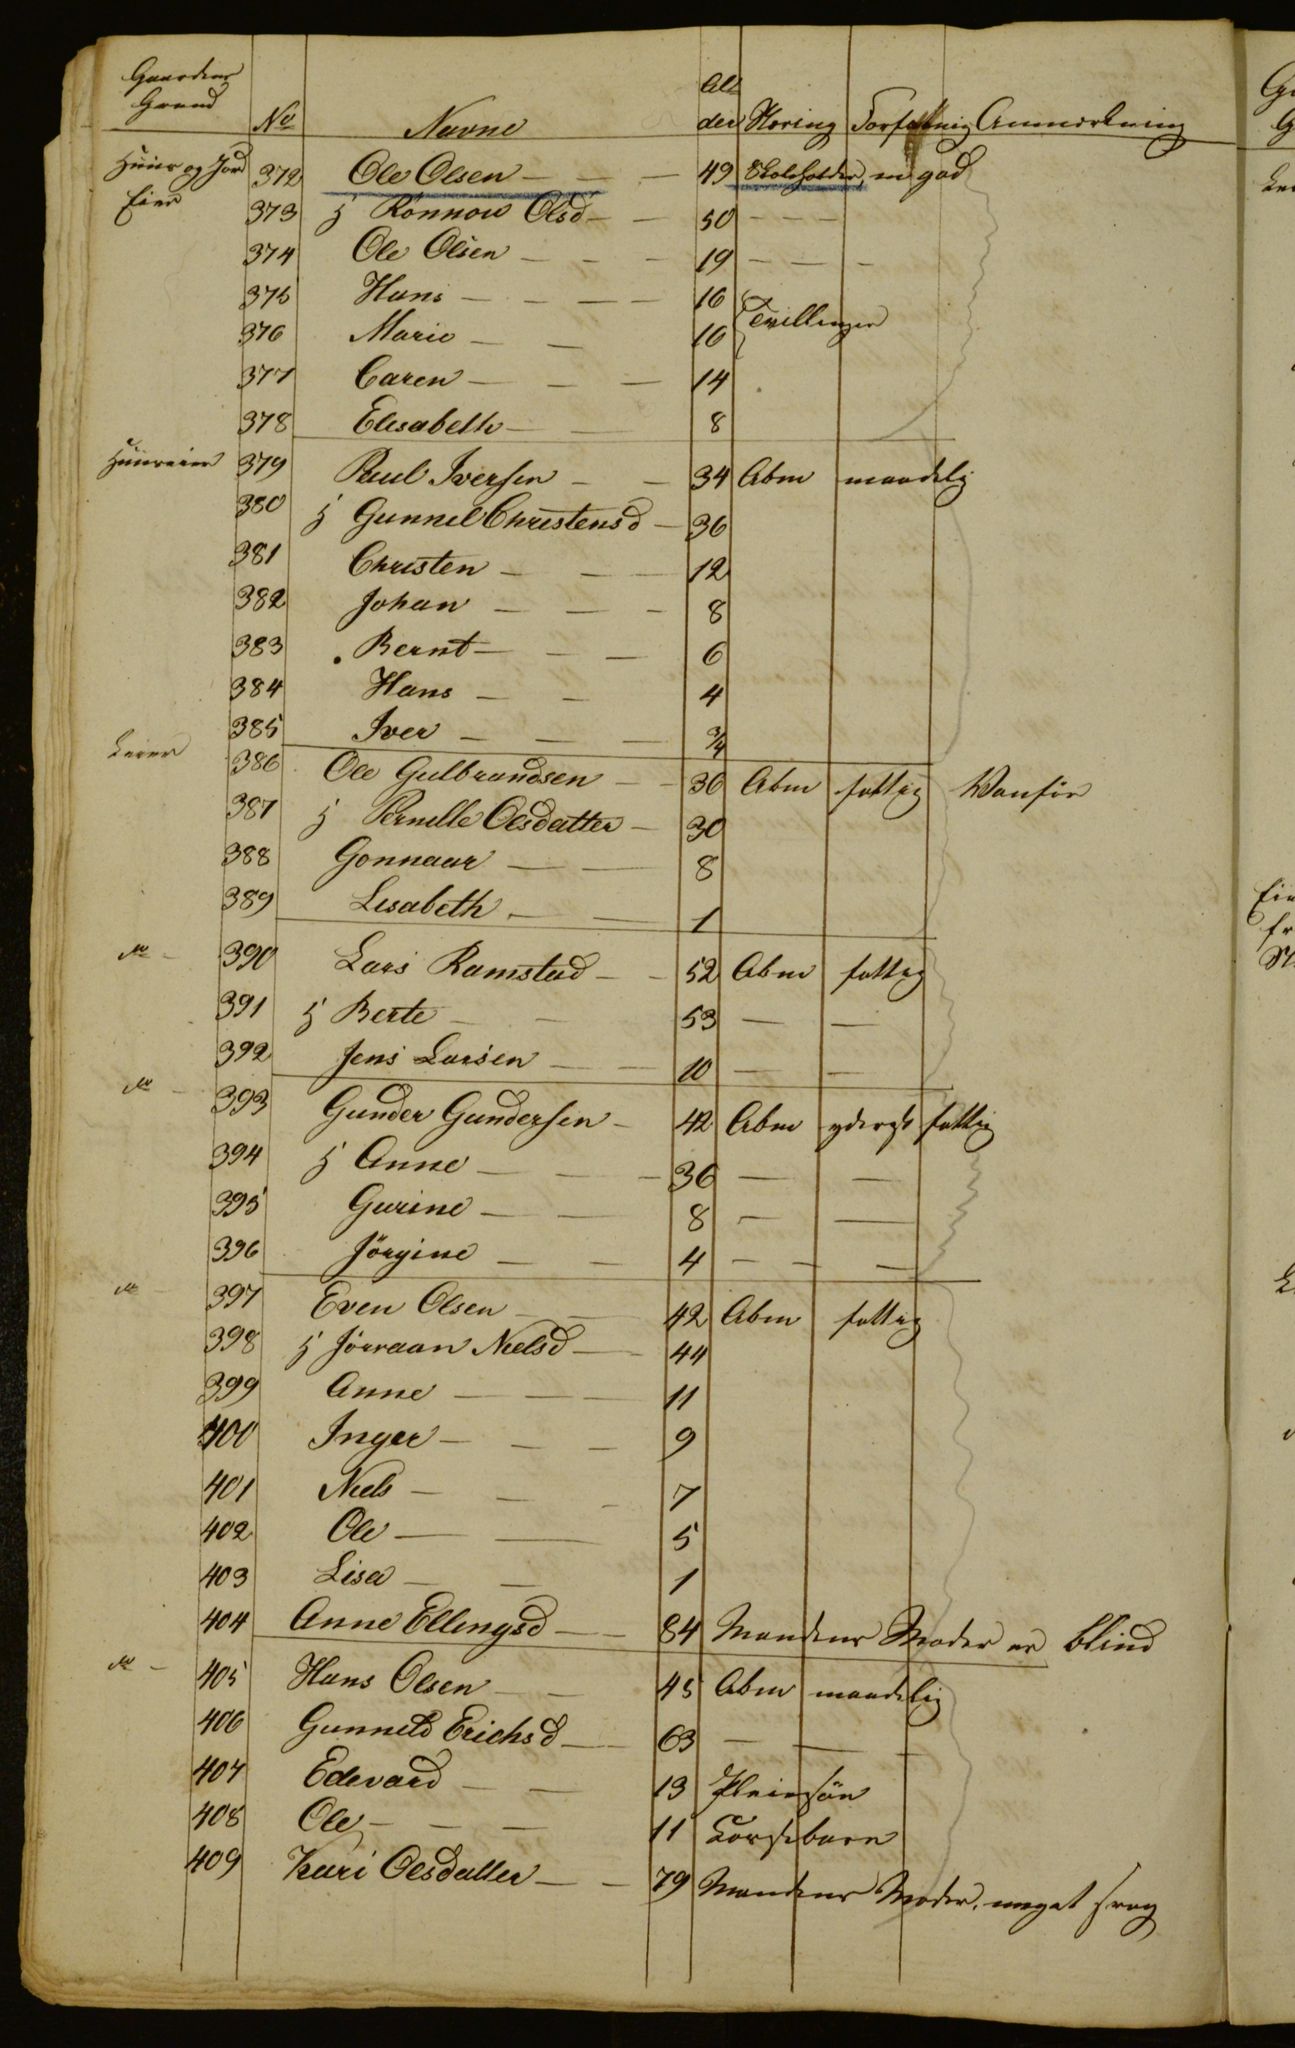 Gaardens Grund No Navne Alder Næring Forfatning Anmærkning
Huus og Jord Eier 372 Ole Olsen - - - 49 Skoleholder, en god
373 h Rönnow Olsd - - 50 - - -
374 Ole Olsen - - - 19 - - -
375 Hans - - - - 16 { Tvillinger
376 Marie - - 16
377 Caren - - - 14
378 Elisabeth - - 8
Huuseier 379 Paul Iversen - - 34 Abm maadelig
380 h Gunnel Christensd - 36
381 Christen - - - 12
382 Johan - - - 8
383 . Bernt - - - 6
384 Hans - - 4
385 Iver - - - 3/4
Leier 386 Ole Gulbrandsen - - 36 Abm fattig Vanför
387 h Pernille Olsdatter - 30
388 Gonnaar - - 8
389 Lisabeth - - 1
do - 390 Lars Ramstad - - 52 Abm fattig
391 h Berte - - 53 - -
392 Jens Larsen - - 10 - -
do - 393 Gunder Gundersen - 42 Abm yderst fattig
394 h Anne - - - 36 - -
395 Gurine - - 8 - -
396 Jörgine - - 4 - - -
do - 397 Even Olsen - - 42 Abm fattig
398 h Jörraan Nielsd - - 44
399 Anne - - - 11
400 Inger - - - 9
401 Niels - - - 7
402 Ole - - 5
403 Lisa - - 1
404 Anne Ellingsd - - 84 Mandens Moder er blind
do - 405 Hans Olsen - - 45 Abm maadelig
406 Gunneld Erichsd - - 63 - - -
407 Edevard - - 13 Pleiesön
408 Ole - - - 11
409 Kari Olsdatter - - 79 Mandens Moder, meget svag